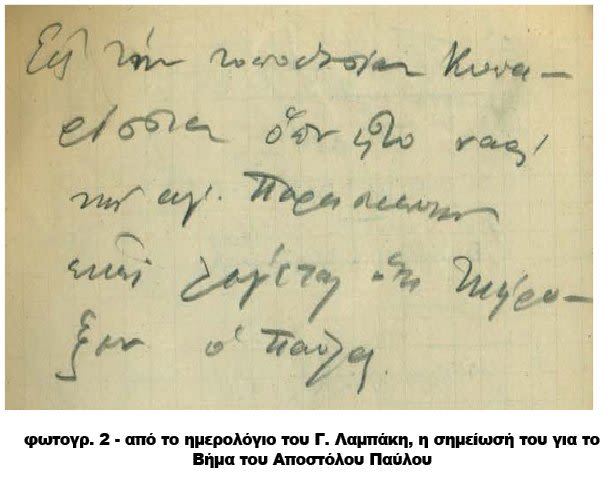 Εἰς τὴν τοποθεσίαν Κυπα-
ρίσσια ὅπου ἦτο ναὸς
τῆς ἁγ. Παρασκευῆς
ἐκεῖ λέγεται ὅτι ἐκήρυ-
ξεν ὁ Παῦλος.
φωτογρ. 2 - από το ημερολόγιο του Γ. Λαμπάκη, η σημείωσή του για το
Βήμα του Αποστόλου Παύλου